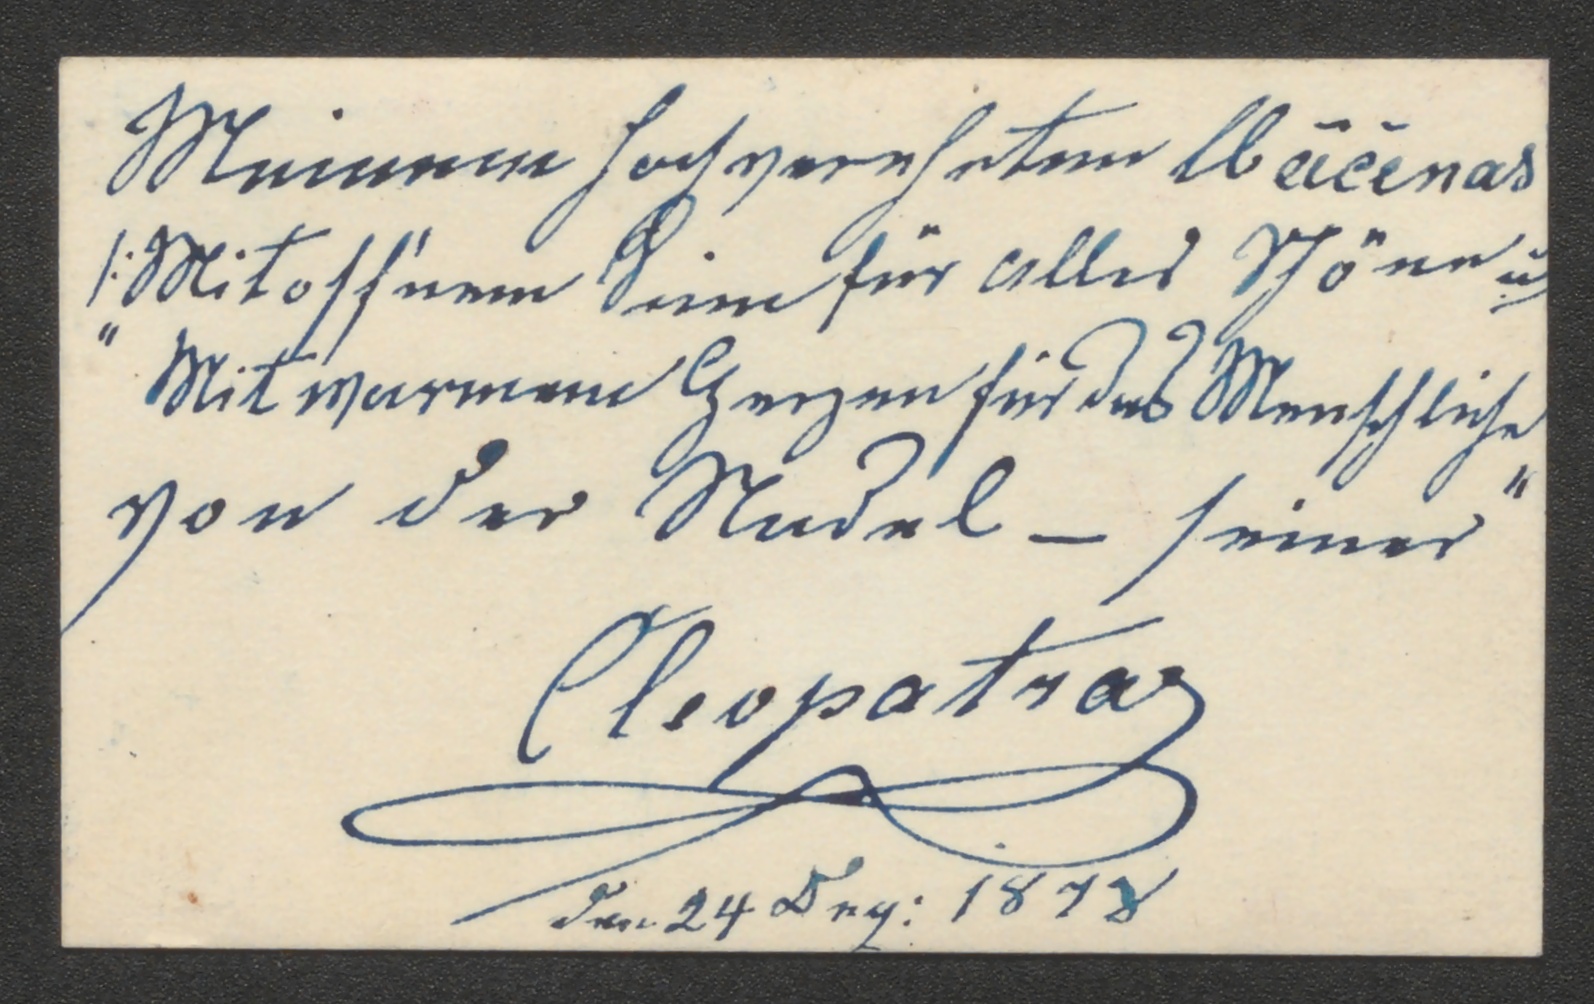 Meinem hochverehrten Mäcenas
/: Mit off'nem Sinn für alles Schöne u
" Mit warmem Herzen für das Menschliche "
von der Nadel – seiner
Cleopatra
den 24 Dez: 1878